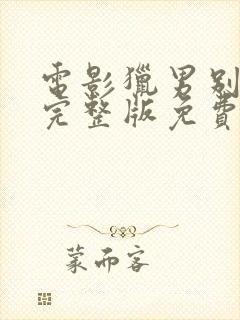 電影獵男別
完整版免費
蒙而客